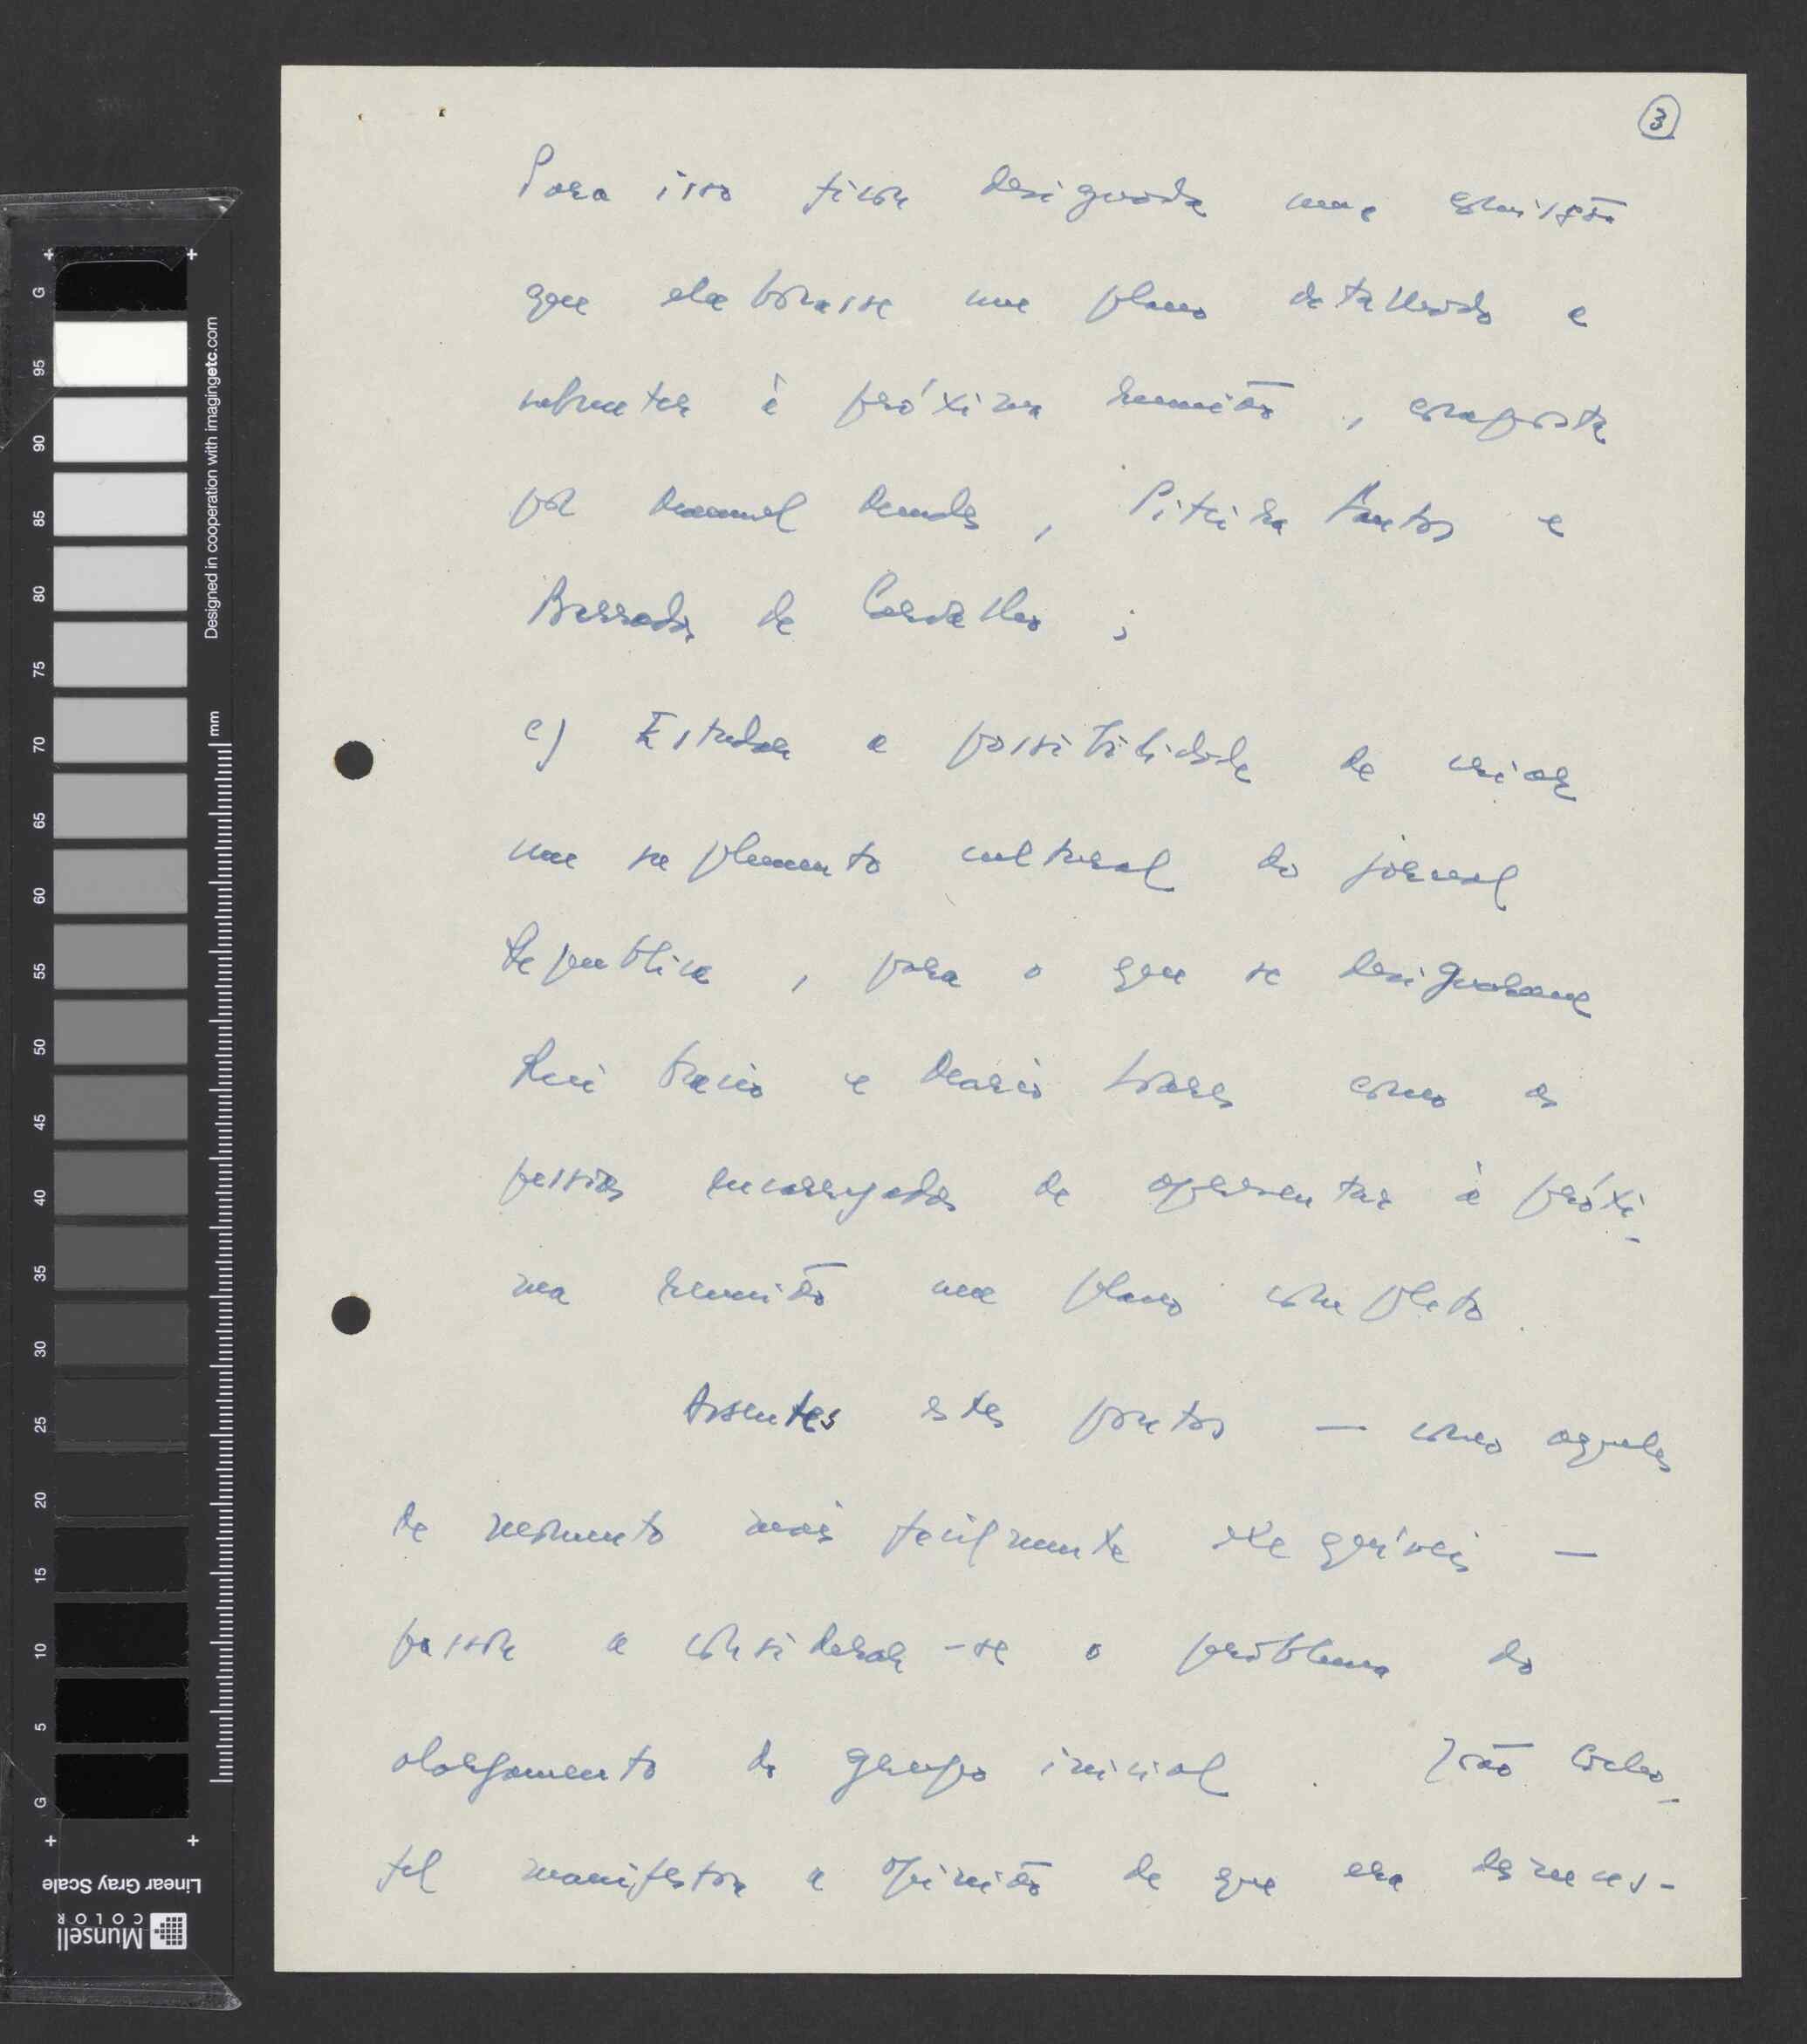 3
Para isso ficou designada uma comissão
que elaborasse um plano detalhado a
submeter à próxima reunião, composta
por Manuel Mendes, Piteira Santos e
Barradas de Carvalho;
c) Estudar a possibilidade de criar
um suplemento cultural do jornal
Republica, para o que se designaram
Rui Grácio e Mário Soares como as
pessoas encarregadas de apresentar à próxi-
ma reunião um plano completo.
Assentes estes pontos — como aqueles
de momento mais facilmente exequíveis —
passou a considerar-se o problema do
alargamento do grupo inicial. João Cocho-
fel manifestou a opinião de que era desneces-
G 95 90 85 80 75 70 65 60 55 50 45 40 35 30 25 20 15 10 5 G
Designed in cooperation with imagingetc.com
mm
Linear Gray Scale
Munsell
COLOR